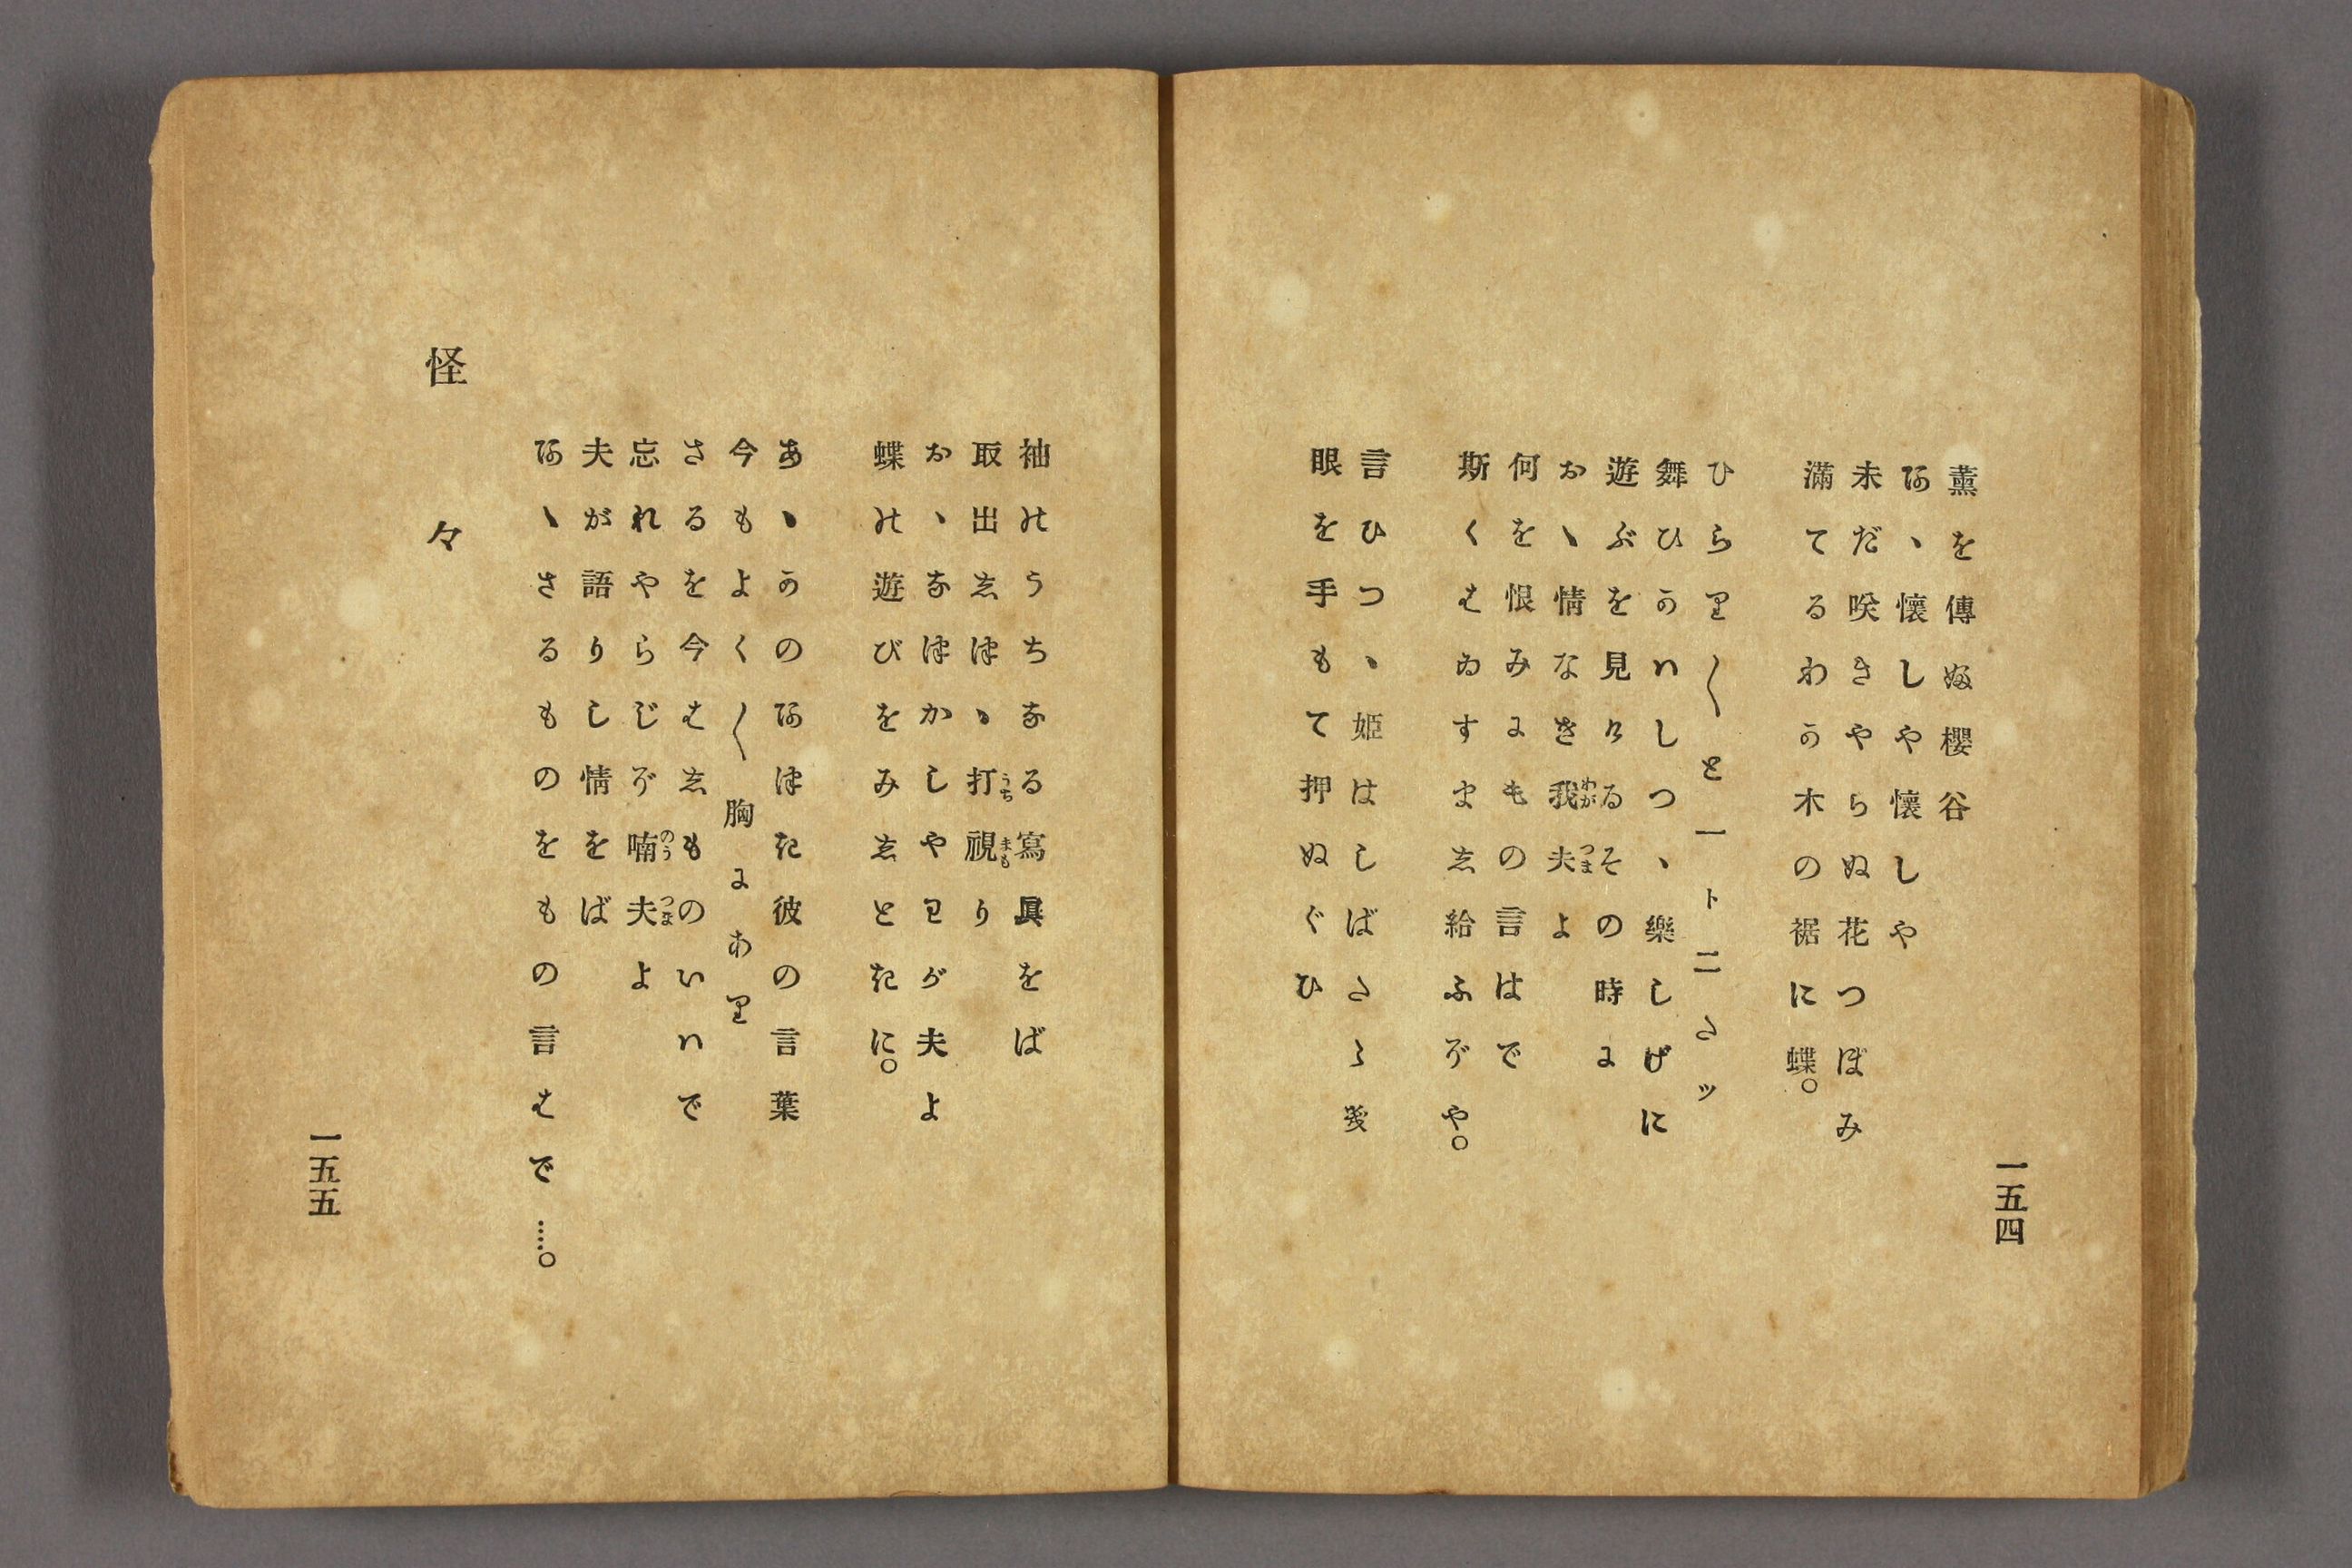 一五四
薫を傳ふ櫻谷
あゝ懷しや懷しや
未だ咲きやらぬ花つぼみ
滿てるわか木の裾に蝶。
ひらり〱と一ト二たッ
舞ひかハしつゝ樂しげに
遊ぶを見けるその時に
おゝ情なき我夫よ
何を恨みにもの言はで
斯くはゐすまし給ふぞや。
言ひつゝ姫はしばたゝき
眼を手もて押ぬぐひ
袖のうちなる寫眞をば
取出しつゝ打視り
おゝなつかしやわが夫よ
蝶の遊びをみしときに。
あゝかのあつき彼の言葉
今もよく〱胸にあり
さるを今はしものいハで
忘れやらじぞ喃夫よ
夫が語りし情をば
あゝさるものをもの言はで……。
怪々
一五五